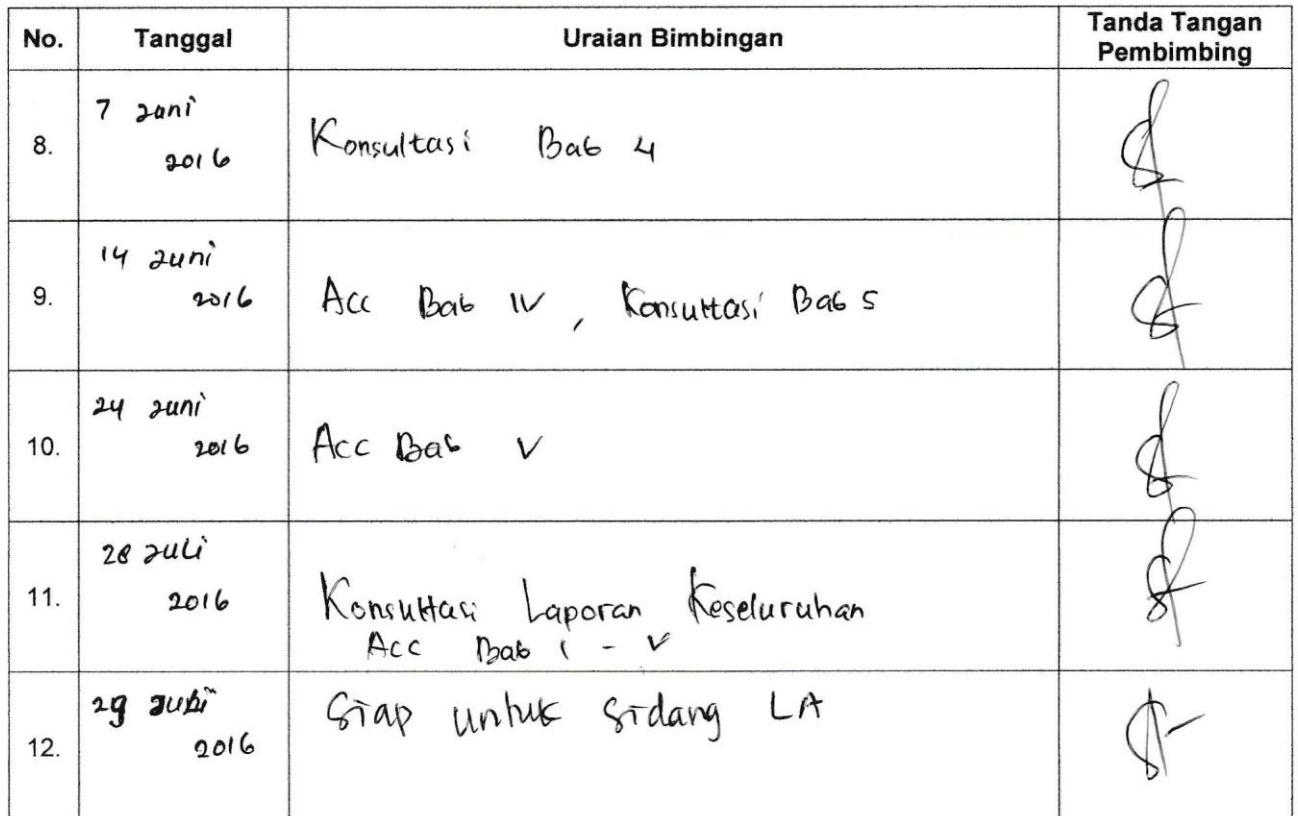 No. Tanggal Uraian Bimbingan Tanda Tangan
Pembimbing
7 Juni
8. 2016 Konsultasi Bab 4
14 Juni
9. 2016 Acc Bab IV, Konsultasi Bab 5
24 Juni
10. 2016 Acc Bab V
28 Juli
11. 2016 Konsultasi Laporan Keseluruhan
Acc Bab I - V
29 Juli Siap untuk sidang LA
12. 2016